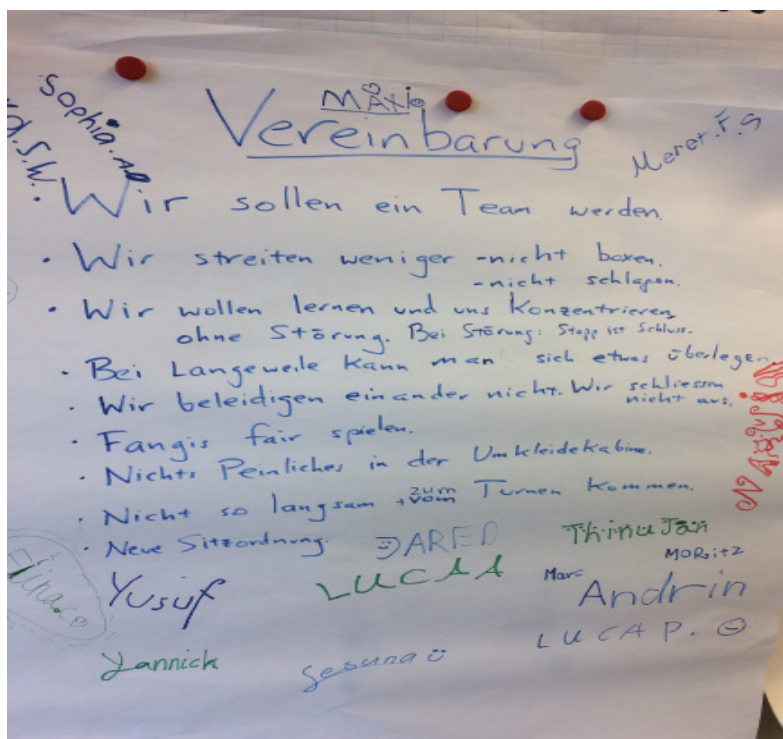 Sophia.
d.S.W.
MAXi
Vereinbarung
Meret.F.S
Wir sollen ein Team werden.
• Wir streiten weniger -nicht boxen.
-nicht schlagen.
• Wir wollen lernen und uns Konzentrieren,
ohne Störung. Bei Störung: Stopp ist Schluss.
• Bei Langeweile Kann man sich etwas überlegen.
• Wir beleidigen einander nicht. Wir schliessen
nicht aus.
• Fangis fair spielen.
• Nichts Peinliches in der Umkleidekabine.
• Nicht so langsam + zum
vom Turnen Kommen.
• Neue Sitzordnung.
JARED
ThinuJan
MORitZ
Yusuf
LUCAA
Marc
Andrin
LUCA P.
Yannick
gesuna